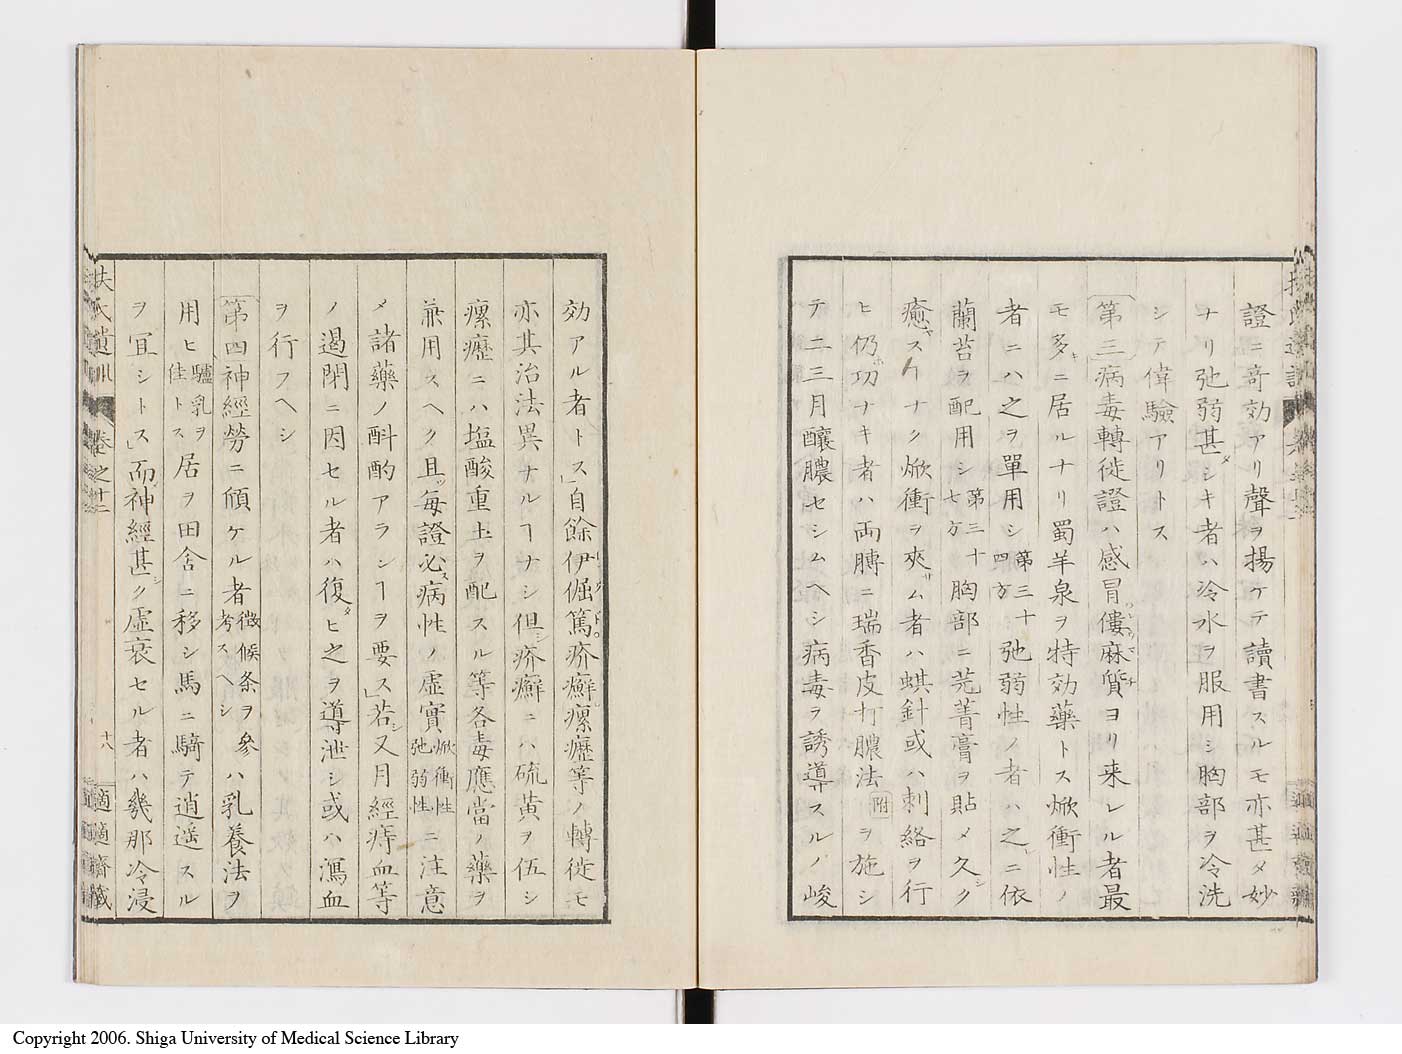 證ニ奇効アリ聲ヲ揚ケテ讀書スルモ亦甚タ妙
ナリ弛弱甚シキ者ハ冷水ヲ服用シ胸部ヲ冷洗
シテ偉驗アリトス
第三病毒轉徙證ハ感冒僂麻質ヨリ来レル者最
モ多キニ居ルナリ蜀羊泉ヲ特効藥トス焮衝性ノ
者ニハ之ヲ單用シ第三十四方弛弱性ノ者ハ之ニ依
蘭苔ヲ配用シ第三十七方胸部ニ芫菁膏ヲ貼メ久ク
癒ヤスヿナク焮衝ヲ夾ム者ハ蜞針或ハ刺絡ヲ行
ヒ仍ホ功ナキ者ハ両膊ニ瑞香皮打膿法附ヲ施シ
テ二三月釀膿セシムヘシ病毒ヲ誘導スルノ峻
効アル者トス」自餘伊倔篤疥癬瘰癧等ノ轉徙モ
亦其治法異ナルヿナシ但シ疥癬ニハ硫黄ヲ伍シ
瘰癧ニハ塩酸重土ヲ配スル等各毒應當ノ藥ヲ
兼用スヘク且ツ毎證必ス病性ノ虚實焮衝性弛弱性ニ注意
メ諸藥ノ斟酌アランヿヲ要ス」若シ又月經痔血等
ノ遏閉ニ因セル者ハ復タヒ之ヲ導泄シ或ハ瀉血
ヲ行フヘシ
第四神經勞ニ傾ケル者徴候条ヲ參考スヘシハ乳養法ヲ
用ヒ驢乳ヲ佳トス居ヲ田舎ニ移シ馬ニ騎テ逍遥スル
ヲ宜シトス」而神經甚シク虚衰セル者ハ幾那冷浸
扶氏遺訓 卷之十二 十八 適適齋藏